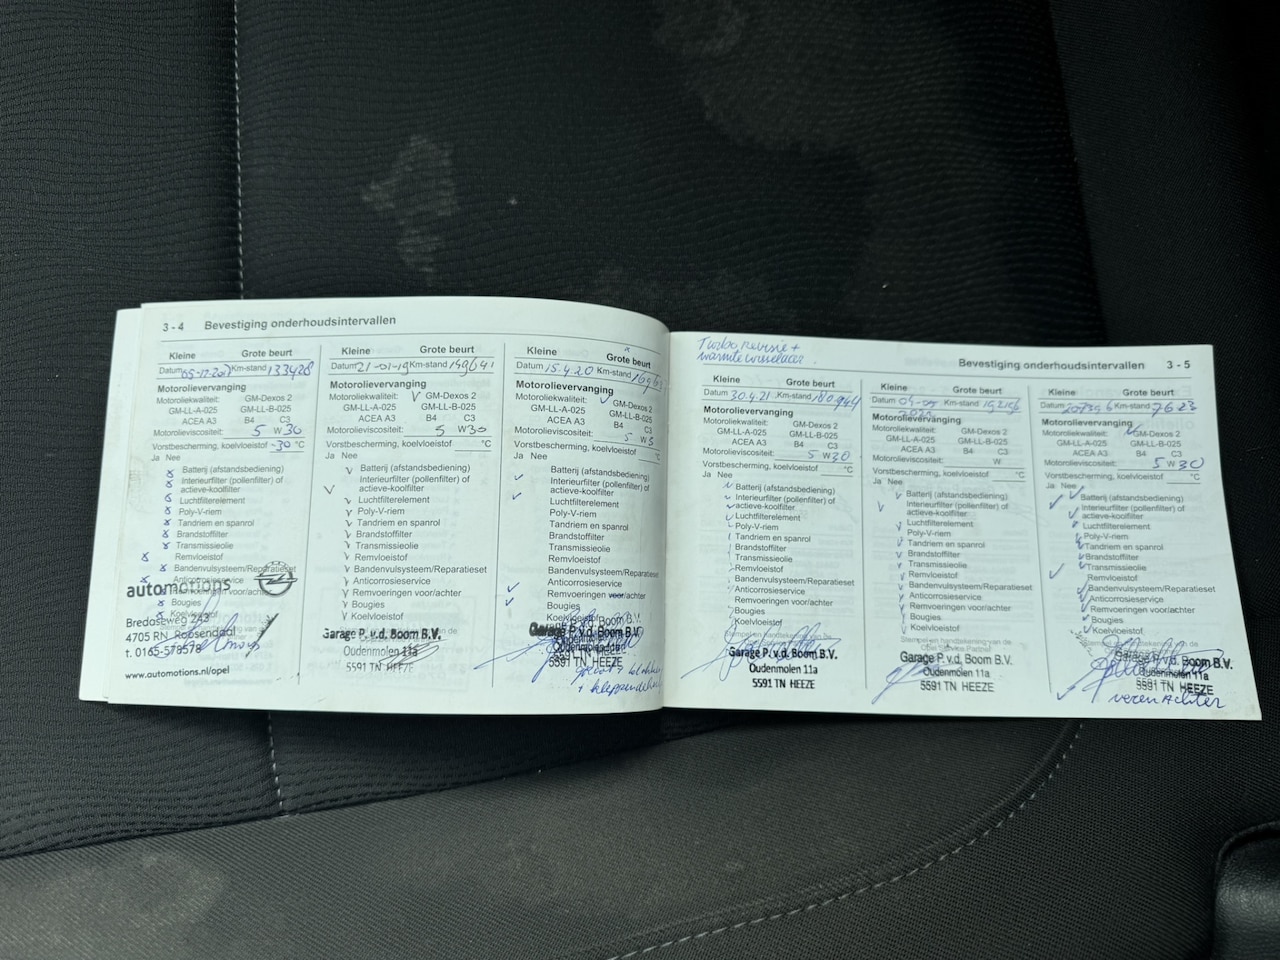 3 - 4 Bevestiging onderhoudsintervallen
Kleine Grote beurt
Datum Km-stand 133428
Motorolievervanging
Motoroliekwaliteit: GM-Dexos 2
GM-LL-A-025 GM-LL-B-025
ACEA A3 B4 C3
Motorolieviscositeit: 5 W 30
Vorstbescherming, koelvloeistof -30 °C
Ja Nee
Batterij (afstandsbediening)
Interieurfilter (pollenfilter) of
actieve-koolfilter
Luchtfilterelement
Poly-V-riem
Tandriem en spanrol
Brandstoffilter
Transmissieolie
Remvloeistof
Bandenvulsysteem/Reparatieset
Anticorrosieservice
Remvoeringen voor/achter
Bougies
Koelvloeistof
automotions
Bredaseweg 243
4705 RN Roosendaal
t. 0165-578578
www.automotions.nl/opel
Kleine Grote beurt
Datum 21-01-19 Km-stand 149641
Motorolievervanging
Motoroliekwaliteit: GM-Dexos 2
GM-LL-A-025 GM-LL-B-025
ACEA A3 B4 C3
Motorolieviscositeit: 5 W 30
Vorstbescherming, koelvloeistof °C
Ja Nee
Batterij (afstandsbediening)
Interieurfilter (pollenfilter) of
actieve-koolfilter
Luchtfilterelement
Poly-V-riem
Tandriem en spanrol
Brandstoffilter
Transmissieolie
Remvloeistof
Bandenvulsysteem/Reparatieset
Anticorrosieservice
Remvoeringen voor/achter
Bougies
Koelvloeistof
Garage P. v.d. Boom B.V.
Oudenmolen 11a
5591 TN HEEZE
Kleine Grote beurt
Datum 15.4.20 Km-stand
Motorolievervanging
Motoroliekwaliteit: GM-Dexos 2
GM-LL-A-025 GM-LL-B-025
ACEA A3 B4 C3
Motorolieviscositeit: 5 W
Vorstbescherming, koelvloeistof °C
Ja Nee
Batterij (afstandsbediening)
Interieurfilter (pollenfilter) of
actieve-koolfilter
Luchtfilterelement
Poly-V-riem
Tandriem en spanrol
Brandstoffilter
Transmissieolie
Remvloeistof
Bandenvulsysteem/Reparatieset
Anticorrosieservice
Remvoeringen voor/achter
Bougies
Koelvloeistof
Garage P. v.d. Boom B.V.
Oudenmolen 11a
5591 TN HEEZE
Turbo Revisie +
Bevestiging onderhoudsintervallen 3 - 5
Kleine Grote beurt
Datum 30.4.21 Km-stand 180944
Motorolievervanging
Motoroliekwaliteit: GM-Dexos 2
GM-LL-A-025 GM-LL-B-025
ACEA A3 B4 C3
Motorolieviscositeit: 5 W 30
Vorstbescherming, koelvloeistof °C
Ja Nee
Batterij (afstandsbediening)
Interieurfilter (pollenfilter) of
actieve-koolfilter
Luchtfilterelement
Poly-V-riem
Tandriem en spanrol
Brandstoffilter
Transmissieolie
Remvloeistof
Bandenvulsysteem/Reparatieset
Anticorrosieservice
Remvoeringen voor/achter
Bougies
Koelvloeistof
Garage P. v.d. Boom B.V.
Oudenmolen 11a
5591 TN HEEZE
Kleine Grote beurt
Datum Km-stand
Motorolievervanging
Motoroliekwaliteit: GM-Dexos 2
GM-LL-A-025 GM-LL-B-025
ACEA A3 B4 C3
Motorolieviscositeit: W
Vorstbescherming, koelvloeistof °C
Ja Nee
Batterij (afstandsbediening)
Interieurfilter (pollenfilter) of
actieve-koolfilter
Luchtfilterelement
Poly-V-riem
Tandriem en spanrol
Brandstoffilter
Transmissieolie
Remvloeistof
Bandenvulsysteem/Reparatieset
Anticorrosieservice
Remvoeringen voor/achter
Bougies
Koelvloeistof
Stempel en handtekening van de
Opel Service Partner
Garage P. v.d. Boom B.V.
Oudenmolen 11a
5591 TN HEEZE
Kleine Grote beurt
Datum Km-stand
Motorolievervanging
Motoroliekwaliteit: GM-Dexos 2
GM-LL-A-025 GM-LL-B-025
ACEA A3 B4 C3
Motorolieviscositeit: 5 W 30
Vorstbescherming, koelvloeistof °C
Ja Nee
Batterij (afstandsbediening)
Interieurfilter (pollenfilter) of
actieve-koolfilter
Luchtfilterelement
Poly-V-riem
Tandriem en spanrol
Brandstoffilter
Transmissieolie
Remvloeistof
Bandenvulsysteem/Reparatieset
Anticorrosieservice
Remvoeringen voor/achter
Bougies
Koelvloeistof
Garage P. v.d. Boom B.V.
Oudenmolen 11a
5591 TN HEEZE
veren Achter